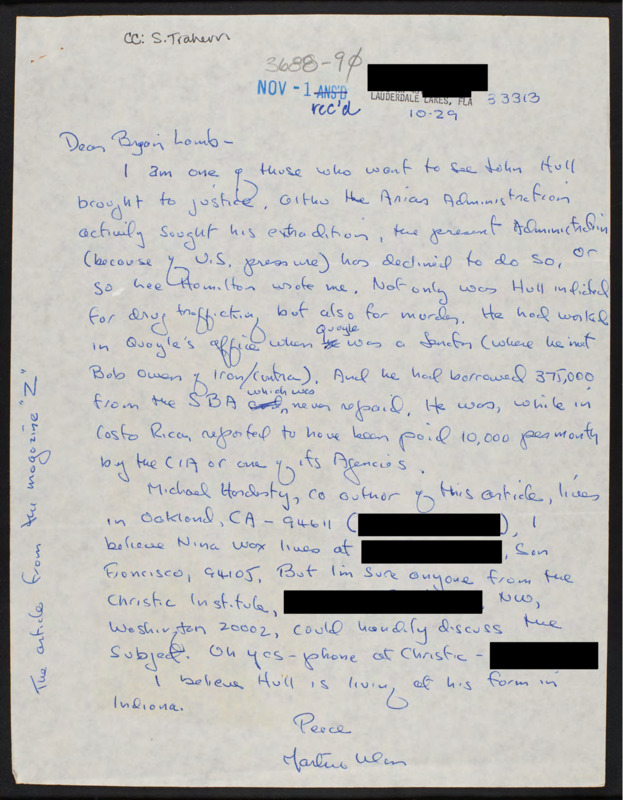 CC: S. Trahern
3688-90
NOV - 1 ANS'D
rec'd
LAUDERDALE LAKES, FLA 33313
10-29
Dear Bryan Lamb-
I am one of those who want to see John Hull
brought to justice. Altho the Arias Administration
actively sought his extradition, the present Administration
(because of U.S. pressure) has declined to do so, or
so Lee Hamilton wrote me. Not only was Hull indicted
for drug trafficing but also for murder. He had worked
in Quayle's office when Quayle was a Senator (where he met
Bob Owen of Iran/Contra). And he had borrowed 375,000
from the SBA which was never repaid. He was, while in
Costa Rica, reported to have been paid 10,000 per month
by the CIA or one of its Agencies.
Michael Hardesty, co author of this article, lives
in Oakland, CA - 94611 ( ), I
believe Nina Wax lives at , San
Francisco, 94105. But I'm sure anyone from the
Christic Institute, , NW,
Washington 20002, could handily discuss the
subject. Oh yes - phone at Christic -
I believe Hull is living at his farm in
Indiana.
Peace
The article from the magazine "Z"